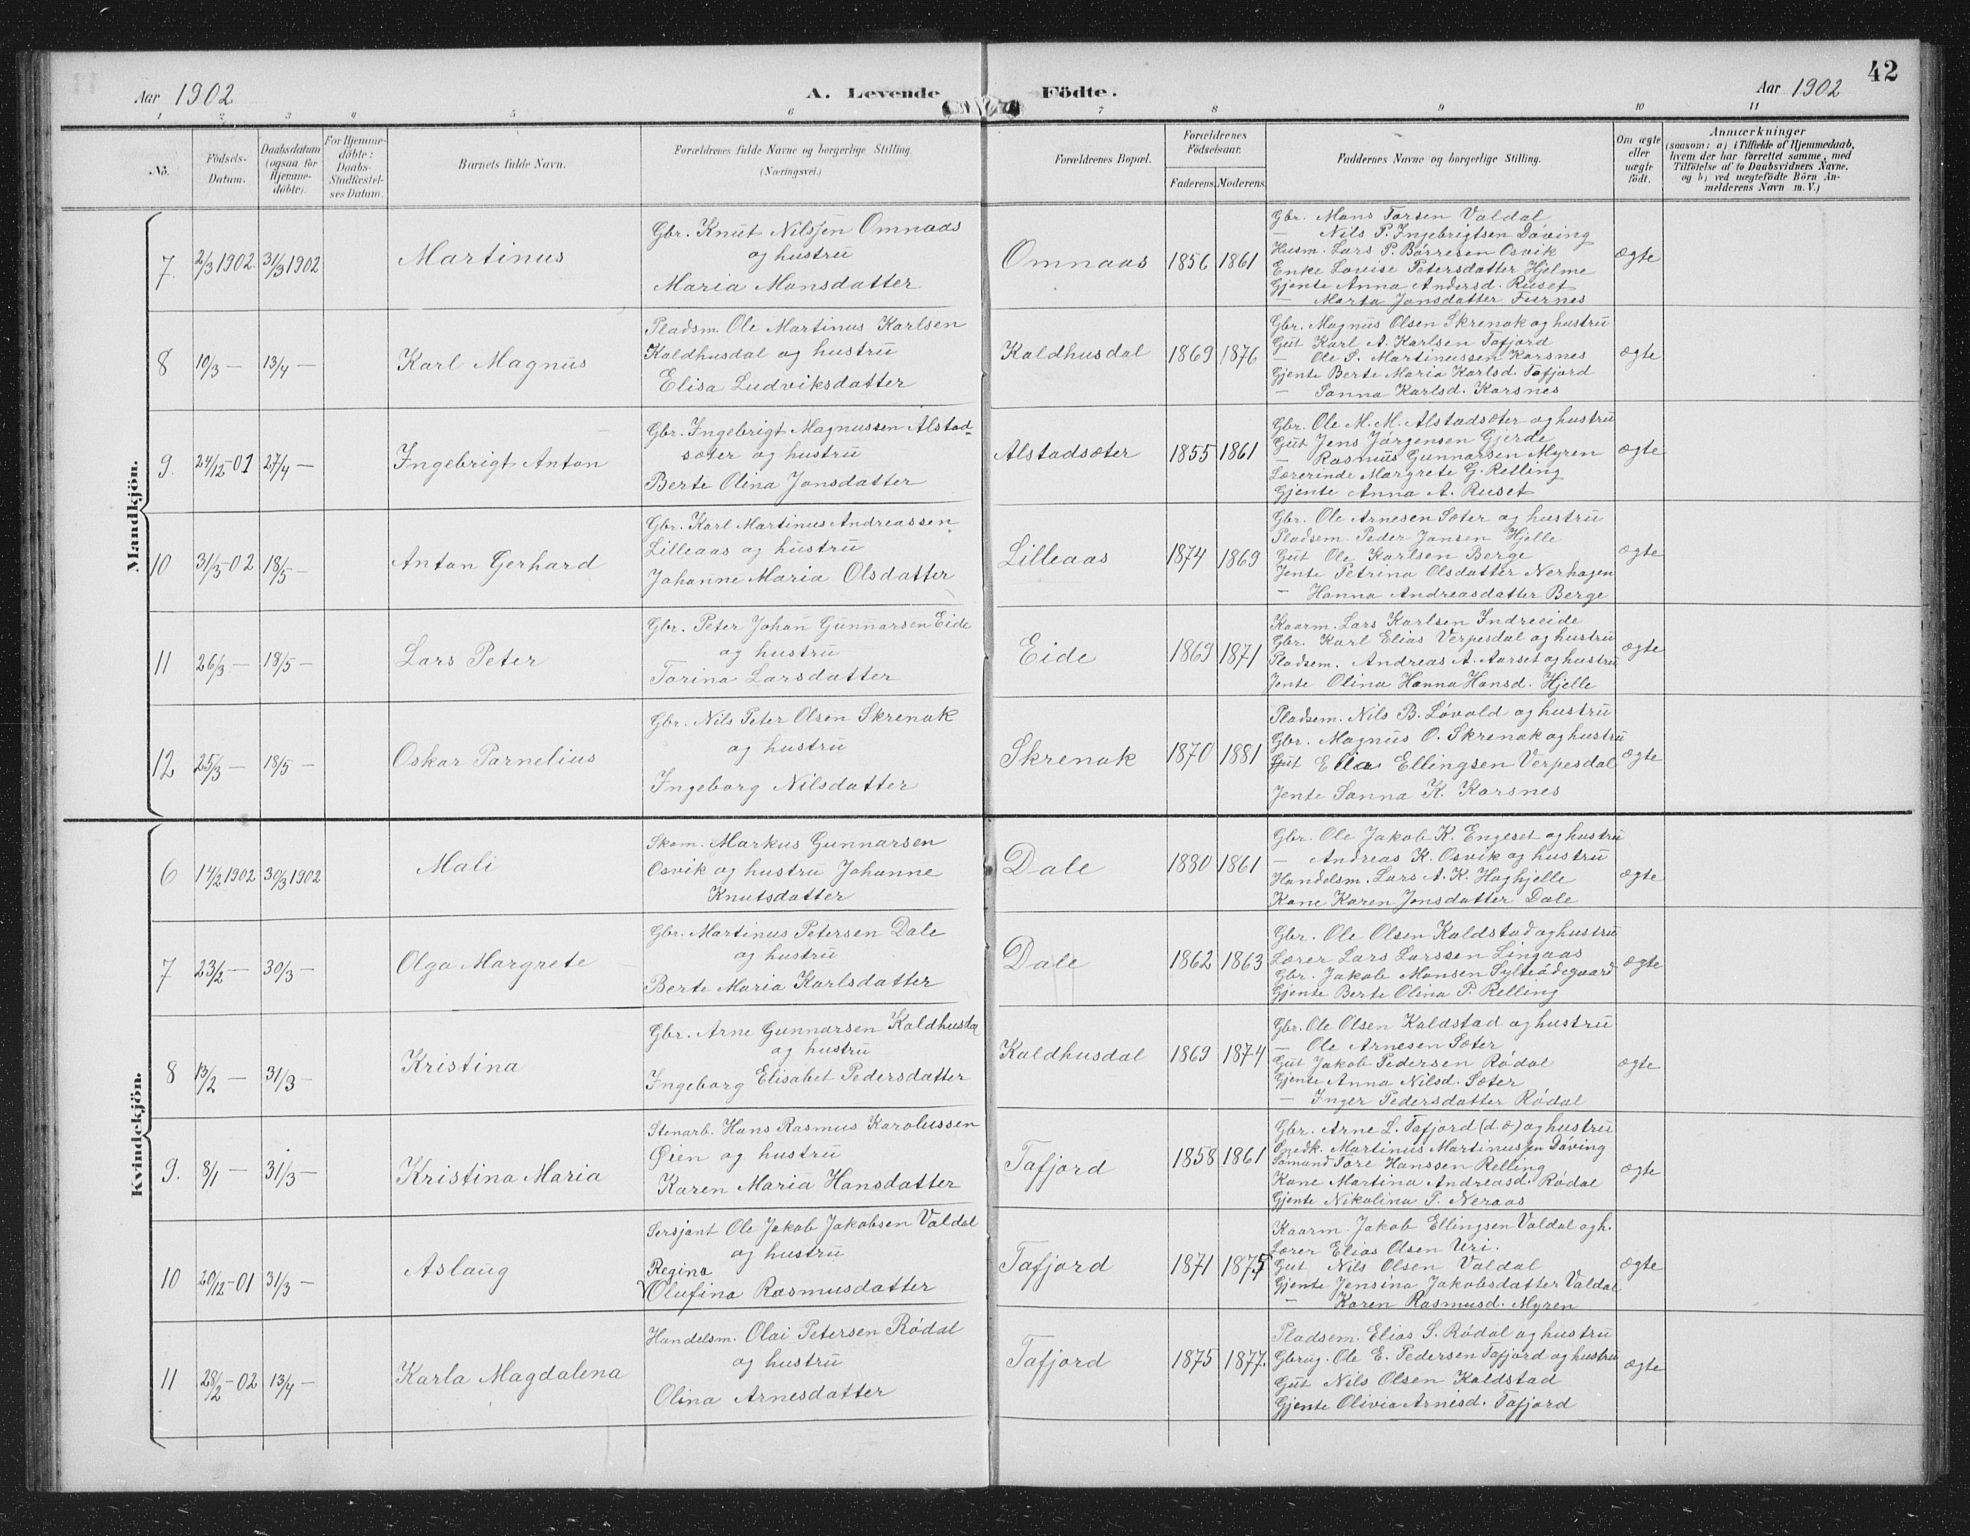 42
Aar 1902 A. Levende Födte. Aar 1902
1 2 3 4 5 6 7 8 9 10 11
No.
Födsels-
Datum.
Daabsdatum
(ogsaa for
Hjemme-
döbte).
For Hjemme-
döbte:
Daabs-
Stadfæstel-
ses Datum.
Barnets fulde Navn.
Forældrenes fulde Navne og borgerlige Stilling.
(Næringsvei.)
Forældrenes Bopæl.
Forældrenes
Födselsaar.
Faderens. Moderens.
Faddernes Navne og borgerlige Stilling.
Om ægte
eller
uægte
født.
Anmærkninger
(saasom: a) i Tilfælde af Hjemmedaab,
hvem der har forrettet samme, med
Tilföielse af to Daabsvidners Navne.
og b) ved uægtefödte Börn An-
melderens Navn m. V.)
Mandkjön.
7. 2/3 1902. 31/3 1902
Martinus
Gbr. Knut Nilssen Omnaas
og hustru
Maria Monsdatter
Omnaas 1856 1861
Gbr. Mons Torsen Valdal
— Nils P. Ingebrigtsen Döving
Husm. Lars P. Börresen Osvik
Enke Lovise Petersdatter Hjelme
Gjente Anna Andersd. Ruset
— Marta Jonsdatter Furnes
ægte
8 10/3 — 13/4 —
Karl Magnus
Pladsm. Ole Martinus Karlsen
Kaldhusdal og hustru
Elisa Ludviksdatter
Kaldhusdal 1869 1876
Gbr. Magnus Olsen Skrenak og hustru
Gut Karl A. Karlsen Tafjord
— Ole S. Martinussen Korsnes
Gjente Berte Maria Karlsd. Tafjord
— Sanna Karlsd. Korsnes
ægte
9. 24/12-01 27/4 —
Ingebrigt Anton
Gbr. Ingebrigt Magnussen Alstad-
sæter og hustru
Berte Olina Jonsdatter
Alstadsæter 1855 1861
Gbr. Ole M. M. Alstadsæter og hustru
Gut Jens Jörgensen Gjerde
— Rasmus Gunnarsen Myren
Lærerinde Margrete G. Relling
Gjente Anna A. Ruset
ægte
10 31/3-02 18/5 —
Anton Gerhard
Gbr. Karl Martinus Andreassen
Lilleaas og hustru
Johanne Maria Olsdatter
Lilleaas 1874 1869
Gbr. Ole Arnesen Sæter og hustru
Pladsem. Peder Jonsen Hjelle
Gut Ole Karlsen Berge
Jente Petrina Olsdatter Nerhagen
— Hanna Andreasdatter Berge
ægte
11 26/3 — 18/5 —
Lars Peter
Gbr. Peter Johan Gunnarsen Eide
og hustru
Torina Larsdatter
Eide 1869 1871
Kaarm. Lars Karlsen Indreeide
Gbr. Karl Elias Verpesdal og hustru
Pladsem. Andreas A. Aarset og hustru
Jente Olina Hanna Hansd. Hjelle
ægte
12 25/3 — 18/5 —
Oskar Parnelius
Gbr. Nils Peter Olsen Skrenak
og hustru
Ingeborg Nilsdatter
Skrenak 1870 1881
Pladsem. Nils B. Lövold og hustru
Gbr. Magnus O. Skrenak og hustru
Gut Elias Ellingsen Verpesdal
Jente Sanna K. Korsnes
ægte
Kvindekjön.
6 14/2 1902 30/3 1902
Mali
Skom. Markus Gunnarsen
Osvik og hustru Johanne
Knutsdatter
Dale 1880 1861
Gbr. Ole Jakob K. Engeset og hustru
— Andreas K. Osvik og hustru
Handelsm. Lars A. K. Haghjelle
Kone Karen Jonsdatter Dale
ægte
7 23/2 — 30/3 —
Olga Margrete
Gbr. Martinus Petersen Dale
og hustru
Berte Maria Karlsdatter
Dale 1862 1863
Gbr. Ole Olsen Kaldstad og hustru
Lærer Lars Larssen Lingaas
Gbr. Jakob Monsen Sylteödegaard
Gjente Berte Olina P. Relling
ægte
8 13/2 — 31/3 —
Kristina
Gbr. Arne Gunnarsen Kaldhusdal
og hustru
Ingeborg Elisabet Pedersdatter
Kaldhusdal 1869 1874
Gbr. Ole Olsen Kaldstad og hustru
— Ole Arnesen Sæter
Gut Jakob Pedersen Rödal
Gjente Anna Nilsd. Sæter
— Inger Pedersdatter Rödal
ægte
9. 8/1 — 31/3 —
Kristina Maria
Stenarb. Hans Rasmus Karolussen
Øien og hustru
Karen Maria Hansdatter
Tafjord 1858 1861
Gbr. Arne L. Tafjord (d.æ) og hustru
Snedk. Martinus Martinussen Döving
Sömand Tore Hanssen Relling
Kone Martina Andreasd. Rödal
Gjente Nikolina P. Neraas
ægte
10 20/12-01 31/3 —
Aslaug
Sersjant Ole Jakob Jakobsen Valdal
og hustru
Regina
Olufina Rasmusdatter
Tafjord 1871 1875
Kaarm. Jakob Ellingsen Valdal og h.
Lærer Elias Olsen Uri.
Gut Nils Olsen Valdal
Gjente Jensina Jakobsdatter Valdal
— Karen Rasmusd. Myren
ægte
11 28/2-02 13/4 —
Karla Magdalena
Handelsm. Olai Petersen Rödal
og hustru
Olina Arnesdatter
Tafjord 1875 1877.
Pladsem. Elias S. Rödal og hustru
Gbrug. Ole E. Pedersen Tafjord og hustru
Gut Nils Olsen Kaldstad
Gjente Olivia Arnesd. Tafjord
ægte